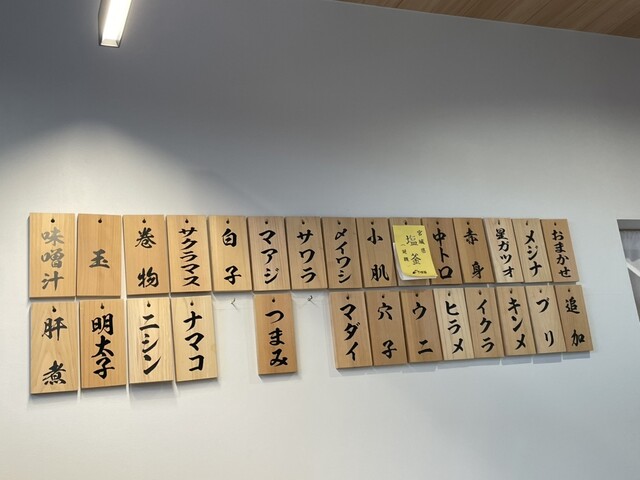 おまかせ
メジナ
星ガツオ
赤身
中トロ
宮城県
塩釜
小肌
メイワシ
サワラ
マアジ
白子
サクラマス
巻物
玉
味噌汁
追加
ブリ
キンメ
イクラ
ヒラメ
ウニ
穴子
マダイ
つまみ
ナマコ
ニシン
明太子
肝煮